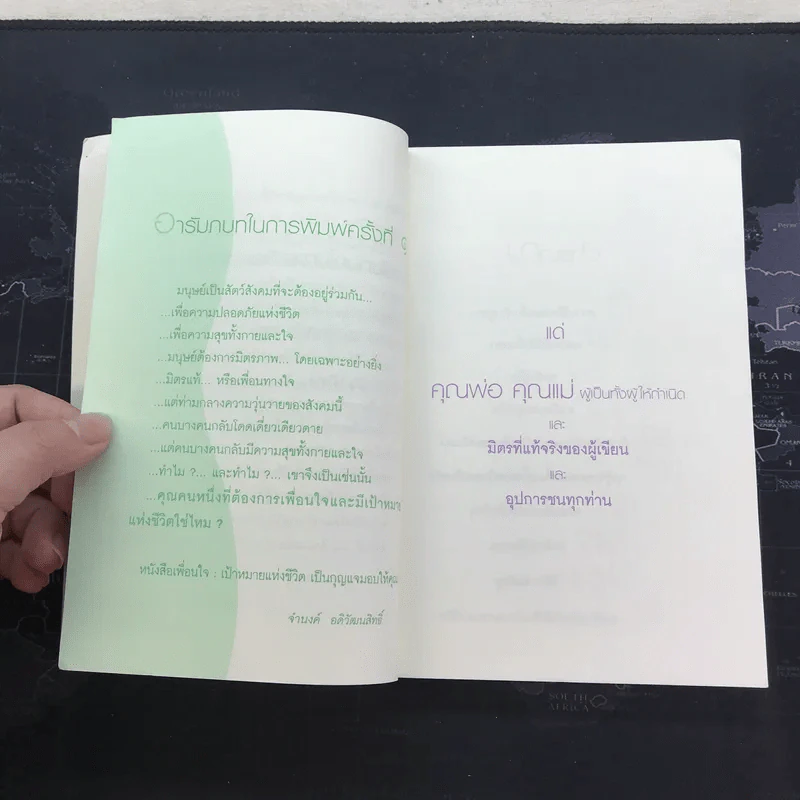 อารัมภบทในการพิมพ์ครั้งที่ ๑
มนุษย์เป็นสัตว์สังคมที่จะต้องอยู่ร่วมกัน...
...เพื่อความปลอดภัยแห่งชีวิต
...เพื่อความสุขทั้งกายและใจ
...มนุษย์ต้องการมิตรภาพ... โดยเฉพาะอย่างยิ่ง
...มิตรแท้... หรือเพื่อนทางใจ
...แต่ท่ามกลางความวุ่นวายของสังคมนี้
...คนบางคนกลับโดดเดี่ยวเดียวดาย
...แต่คนบางคนกลับมีความสุขทั้งกายและใจ
...ทำไม ?... และทำไม ?... เขาจึงเป็นเช่นนั้น
...คุณคนหนึ่งที่ต้องการเพื่อนใจและมีเป้าหมาย
แห่งชีวิตใช่ไหม ?
หนังสือเพื่อนใจ : เป้าหมายแห่งชีวิต เป็นกุญแจมอบให้คุณ
จำนงค์ อดิวัฒนสิทธิ์
แด่
คุณพ่อ คุณแม่ ผู้เป็นทั้งผู้ให้กำเนิด
และ
มิตรที่แท้จริงของผู้เขียน
และ
อุปการชนทุกท่าน
IRAN
SOUTH
AFRICA